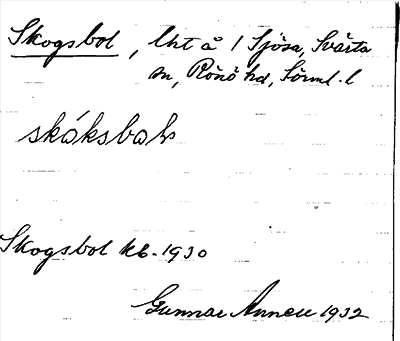 Skogsbol, lht å 1 Sjösa, Svärta
sn, Rönö hd, Sörml. l
skóksboḷ
Skogsbol kb. 1930
Gunnar Annell 1932